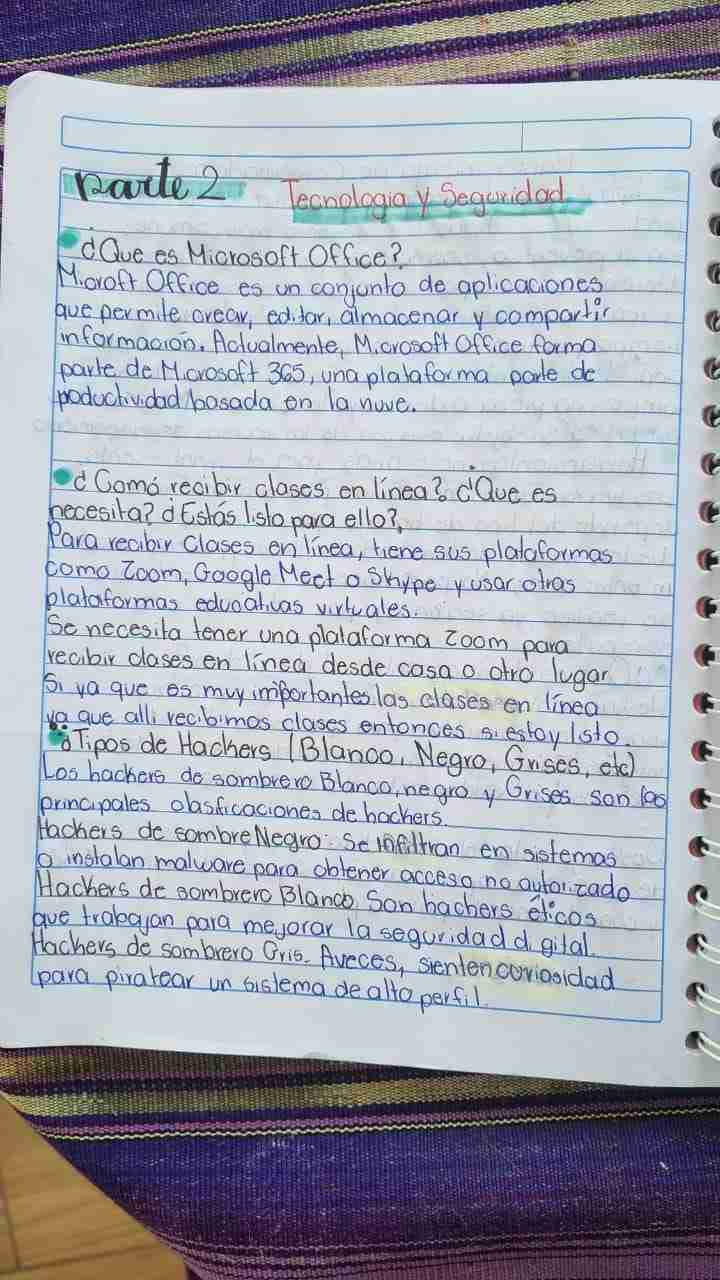 parte 2 Tecnologia y Seguridad
¿Que es Microsoft Office?
Microft Office es un conjunto de aplicaciones
que permite crear, editar, almacenar y compartir
información. Actualmente, Microsoft Office forma
parte de Microsoft 365, una plataforma parte de
poductividad basada en la nuve.
¿Comó recibir clases en línea? ¿Que es
necesita? ¿Estás listo para ello?,
Para recibir Clases en línea, tiene sus plataformas
como Zoom, Google Meet o Skype y usar otras
plataformas educativas virtuales.
Se necesita tener una plataforma Zoom para
recibir clases en línea desde casa o otro lugar
Si ya que es muy importantes las clases en línea
ya que alli recibimos clases entonces si estoy listo.
Tipos de Hackers (Blanco, Negro, Grises, etc)
Los hackers de sombrero Blanco, negro y Grises son las
principales clasficaciones de hackers.
Hackers de sombre Negro: Se infiltran en sistemas
o instalan malware para obtener acceso no autorizado
Hackers de sombrero Blanco Son hachers éticos
que trabajan para mejorar la seguridad digital.
Hackers de sombrero Gris. Aveces, sienten curiosidad
para piratear un sistema de alto perfil.